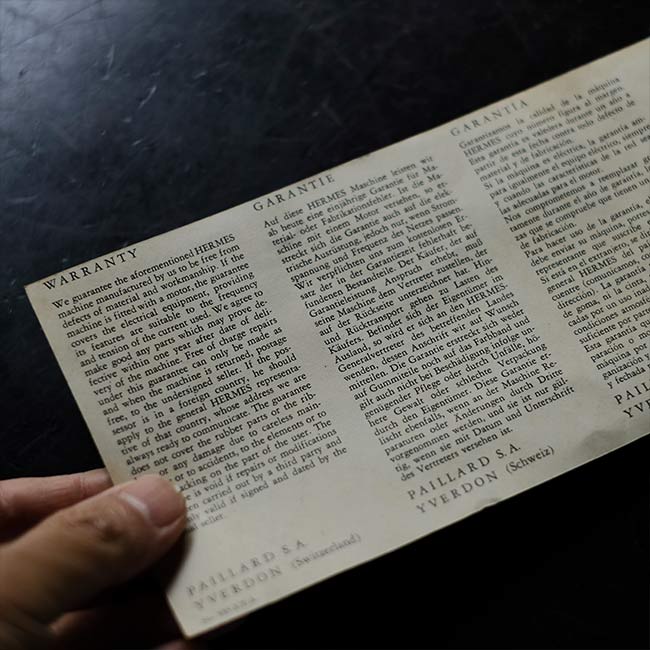 WARRANTY
We guarantee the aforementioned HERMES
machine manufactured by us to be free from
defects of material and workmanship. If the
machine is fitted with a motor, the guarantee
covers the electrical equipment, providing
its features are suitable to the frequency
and tension of the current used. We agree to
make good any parts which may prove de-
fective within one year after date of deli-
very of the machine. Free of charge repairs
under this guarantee can only be made as
and when the machine is returned, postage
free, to the undersigned seller. If the pos-
sessor is in a foreign country, he should
apply to the general HERMES representa-
tive of that country, whose address we are
always ready to communicate. The guarantee
does not cover the rubber parts or the rib-
or any damage due to careless main-
or to accidents, to the elements or
lacking on the part of the user. The
is void if repairs or modifications
been carried out by a third party and
only valid if signed and dated by the
seller.
PAILLARD S.A.
YVERDON (Switzerland)
GARANTIE
Auf diese HERMES Maschine leisten wir
ab heute eine einjährige Garantie für Ma-
terial- oder Fabrikationsfehler. Ist die Ma-
schine mit einem Motor versehen, so er-
streckt sich die Garantie auch auf die elek-
trische Ausrüstung, jedoch nur wenn sich
Spannung und Frequenz des Netzes passen.
Wir verpflichten uns zum kostenlosen Er-
satz der in der Garantiezeit fehlerhaft be-
fundenen Bestandteile. Der Käufer, der auf
Garantieleistung Anspruch erhebt, muß
seine Maschine dem Vertreter zustellen, der
auf der Rückseite unterzeichnet hat. Hin-
und Rücktransport gehen zu Lasten des
Käufers. Befindet sich der Eigentümer im
Ausland, so soll er sich an den HERMES-
Generalvertreter des betreffenden Landes
wenden, dessen Anschrift wir auf Wunsch
mitteilen. Die Garantie erstreckt sich weder
auf Gummiteile noch auf das Farbband und
gilt auch nicht bei Beschädigung infolge un-
genügender Pflege oder durch Unfälle, hö-
here Gewalt oder schlechte Behandlung
durch den Eigentümer. Diese Garantie er-
lischt ebenfalls, wenn an der Maschine Re-
paraturen oder Änderungen durch Dritte
vorgenommen werden; und sie ist nur gül-
tig, wenn sie mit Datum und Unterschrift
des Vertreters versehen ist.
PAILLARD S.A.
YVERDON (Schweiz)
GARANTIA
Garantizamos la calidad de la máquina
HERMES cuyo número figura al margen.
Esta garantía es valedera durante un año a
partir de esta fecha contra todo defecto de
material y de fabricación.
Si la máquina es eléctrica, la garantía am-
para igualmente el equipo eléctrico, siempre
y cuando las características de la red sean
adecuadas para el motor.
Nos comprometemos a reemplazar
mente durante el año de garantía,
que se compruebe que tienen un
de fabricación.
Para hacer uso de la garantía, el
debe enviar su máquina, porte
representante que suscribe.
está en el extranjero, se
general HERMES del
(comunicamos
dirección). La garantía
de goma, ni la cinta,